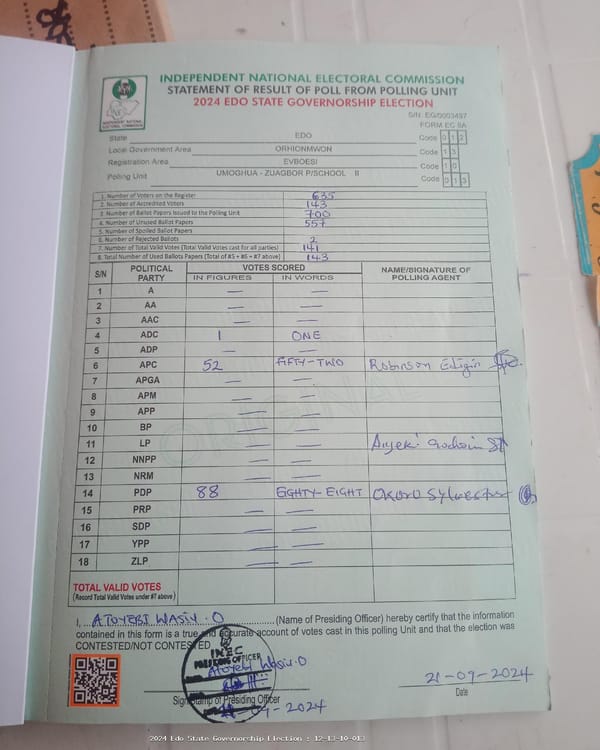 INDEPENDENT NATIONAL ELECTORAL COMMISSION
STATEMENT OF RESULT OF POLL FROM POLLING UNIT
2024 EDO STATE GOVERNORSHIP ELECTION
INDEPENDENT NATIONAL ELECTORAL COMMISSION
S/N: EG/0003497
FORM EC 8A
State EDO Code 0 1 2
Local Government Area ORHIONMWON Code 1 3
Registration Area EVBOESI Code 1 0
Polling Unit UMOGHUA - ZUAGBOR P/SCHOOL II Code 0 1 3
1. Number of Voters on the Register 635
2. Number of Accredited Voters 143
3. Number of Ballot Papers Issued to the Polling Unit 700
4. Number of Unused Ballot Papers 557
5. Number of Spoiled Ballot Papers
6. Number of Rejected Ballots 2
7. Number of Total Valid Votes (Total Valid Votes cast for all parties) 141
8. Total Number of Used Ballots Papers (Total of #5 + #6 + #7 above) 143
S/N POLITICAL PARTY VOTES SCORED NAME/SIGNATURE OF POLLING AGENT
IN FIGURES IN WORDS
1 A — —
2 AA — —
3 AAC — —
4 ADC 1 ONE
5 ADP — —
6 APC 52 FIFTY-TWO Robinson
7 APGA — —
8 APM — —
9 APP — —
10 BP — —
11 LP — —
12 NNPP — —
13 NRM — —
14 PDP 88 EIGHTY-EIGHT Okoro Sylvester
15 PRP — —
16 SDP — —
17 YPP — —
18 ZLP — —
ORIGINAL
TOTAL VALID VOTES
(Record Total Valid Votes under #7 above)
I, ATOYEBI WASIU .O (Name of Presiding Officer) hereby certify that the information
contained in this form is a true and accurate account of votes cast in this polling Unit and that the election was
CONTESTED/NOT CONTESTED
INEC
PRESIDING OFFICER
Atoyebi Wasiu .O
21-09-2024
Sign/Stamp of Presiding Officer
21-09-2024
Date
2024 Edo State Governorship Election : 12-13-10-013